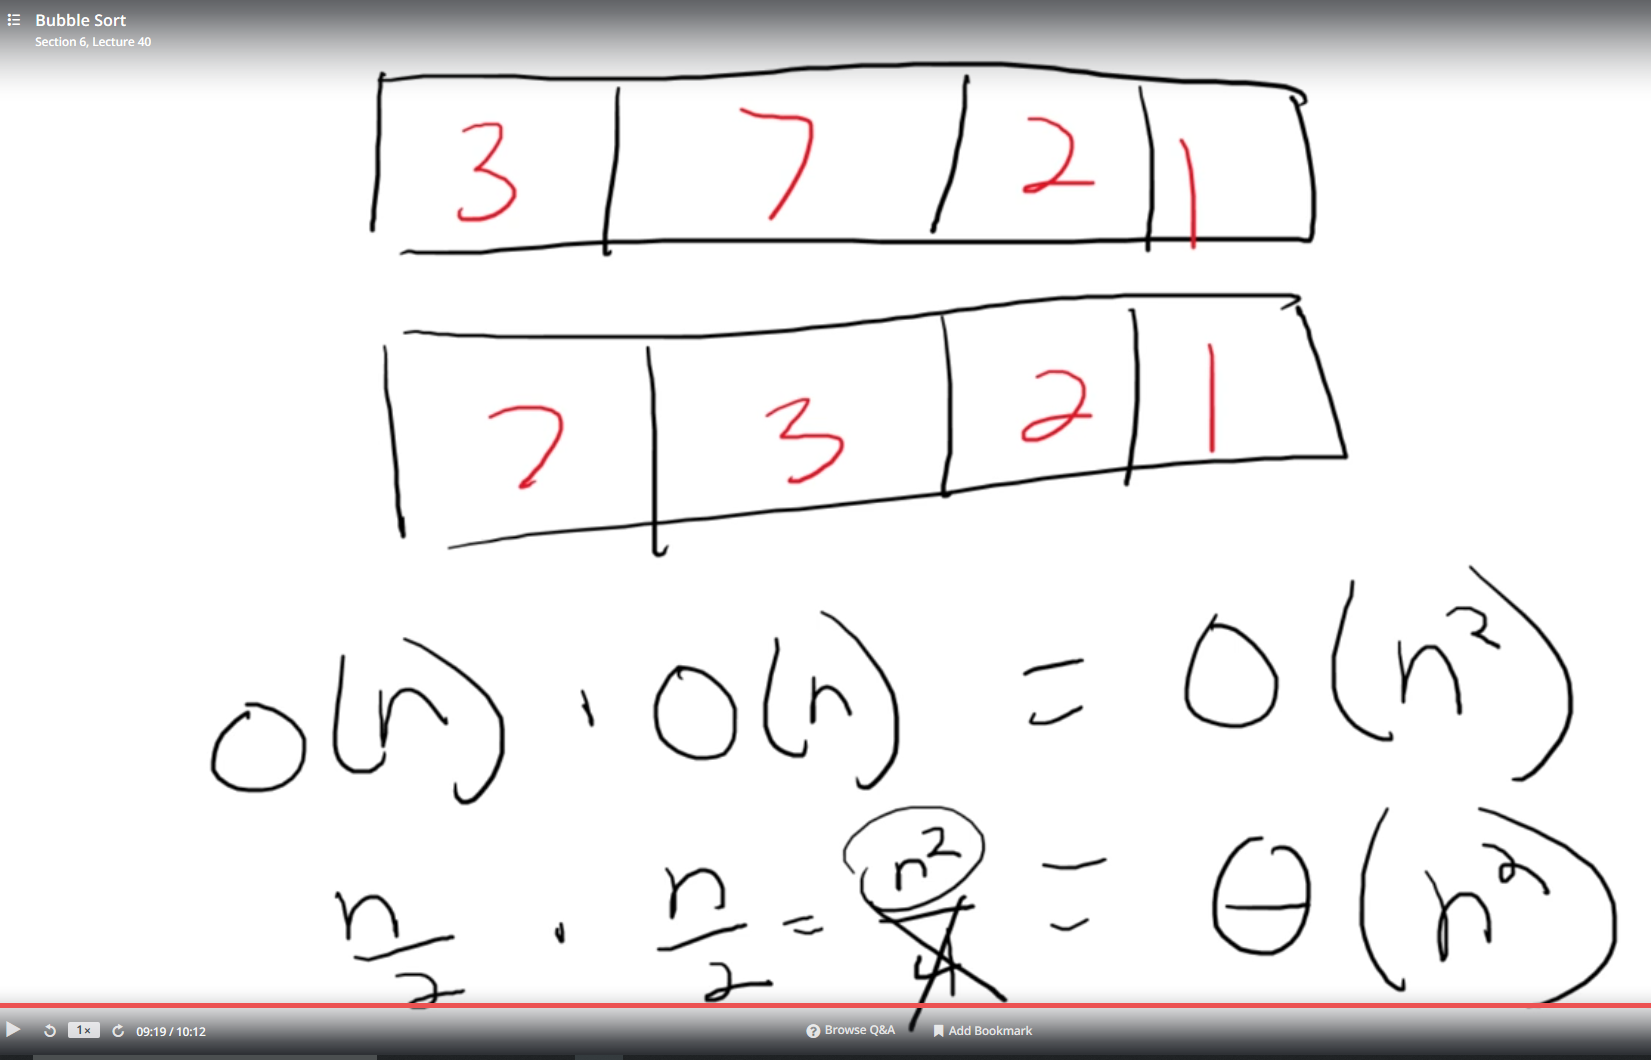 Bubble Sort
Section 6, Lecture 40
3 7 2 1
7 3 2 1
O(n) · O(n) = O(n²)
n/2 · n/2 = n²/4 = Θ(n²)
1× 09:19 / 10:12 Browse Q&A Add Bookmark